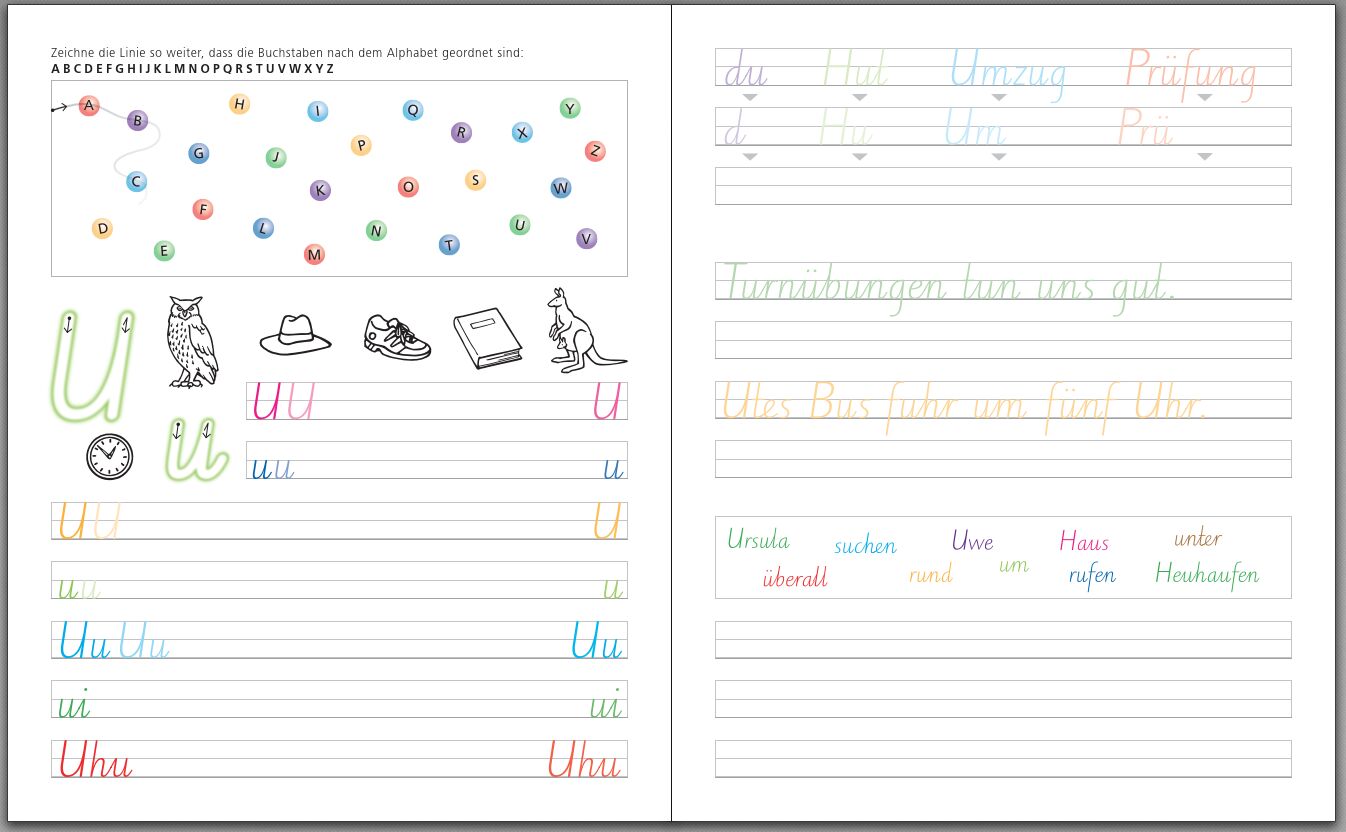 Zeichne die Linie so weiter, dass die Buchstaben nach dem Alphabet geordnet sind:
A B C D E F G H I J K L M N O P Q R S T U V W X Y Z
A B H I Q Y
G J P R X Z
C K O S W
D F L N U V
E M T
U
U U U
u
u u u
U U U
u u u
Uu Uu Uu
ui ui
Uhu Uhu
du Hut Umzug Prüfung
d Hu Um Prü
Turnübungen tun uns gut.
Utes Bus fuhr um fünf Uhr.
Ursula suchen Uwe Haus unter
überall rund um rufen Heuhaufen